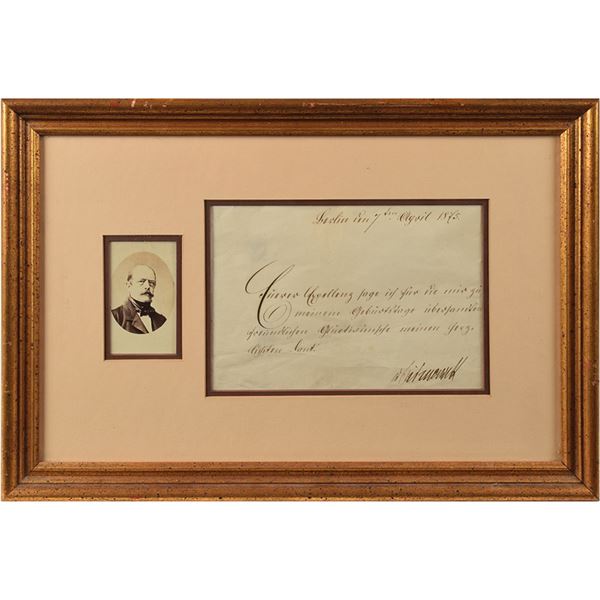 Berlin den 7ten April 1875.
Euerer Exzellenz sage ich für die mir zu
meinem Geburtstage übersandten
freundlichen Glückwünsche meinen herz
lichsten Dank.
v Bismarck